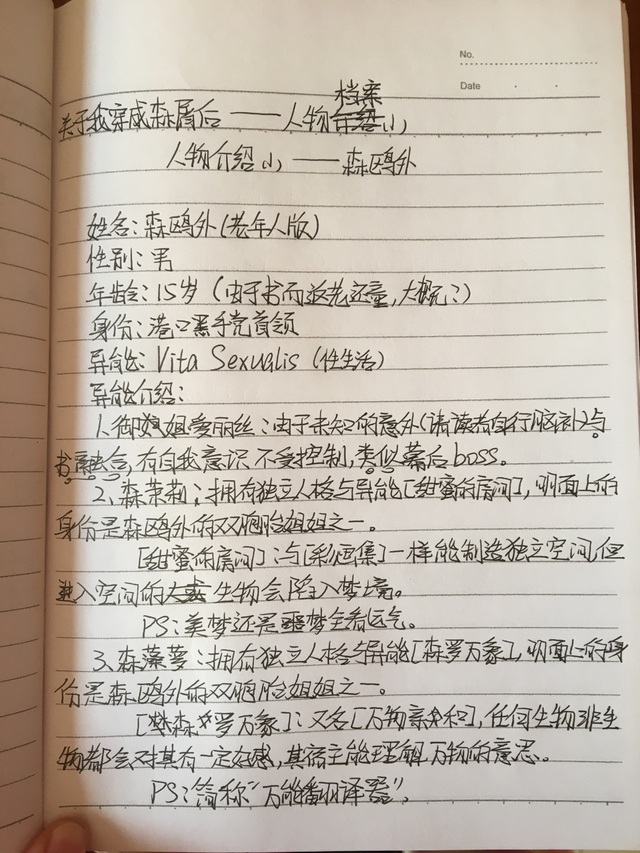 No.
Date
档案
关于我穿成森屑后——人物介绍(1)
人物介绍(1)——森鸥外
姓名:森鸥外(老年人版)
性别:男
年龄:15岁(由于书而返老还童,大概?)
身份:港口黑手党首领
异能:Vita Sexualis(性生活)
异能介绍:
1、御姐爱丽丝:由于未知的意外(请读者自行脑补)与
书融合,有自我意识不受控制,类似幕后boss。
2、森茉莉:拥有独立人格与异能[甜蜜的房间],明面上的
身份是森鸥外的双胞胎姐姐之一。
[甜蜜的房间]:与[彩画集]一样能制造独立空间,但
进入空间的生物会陷入梦境。
PS:美梦还是噩梦全看运气。
3、森蘿萝:拥有独立人格与异能[森罗万象],明面上的身
份是森鸥外的双胞胎姐姐之一。
[森罗万象]:又名[万物亲和],任何生物非生
物都会对其有一定好感,其宿主能理解万物的意思。
PS:简称“万能翻译器”。